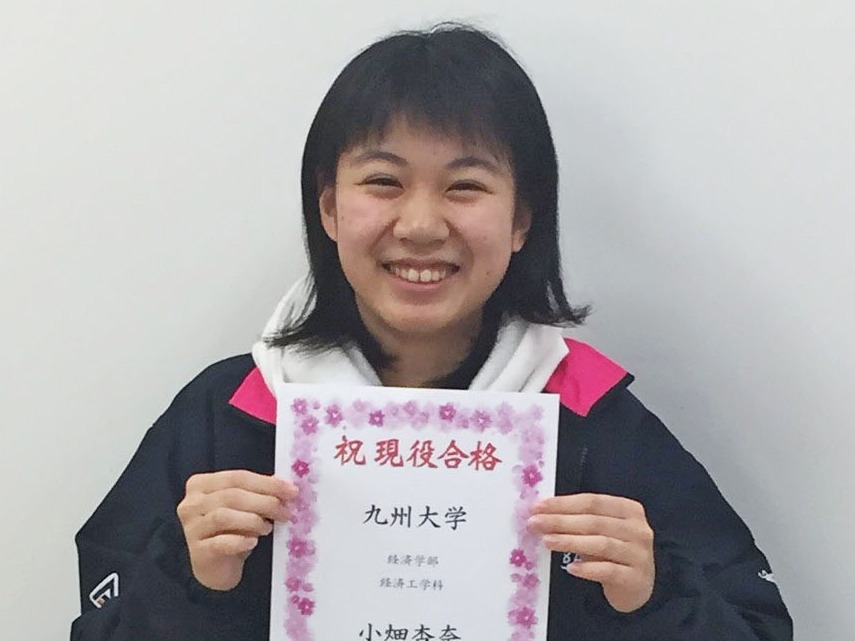 祝 現役合格
九州大学
経済学部
経済工学科
小畑杏奈